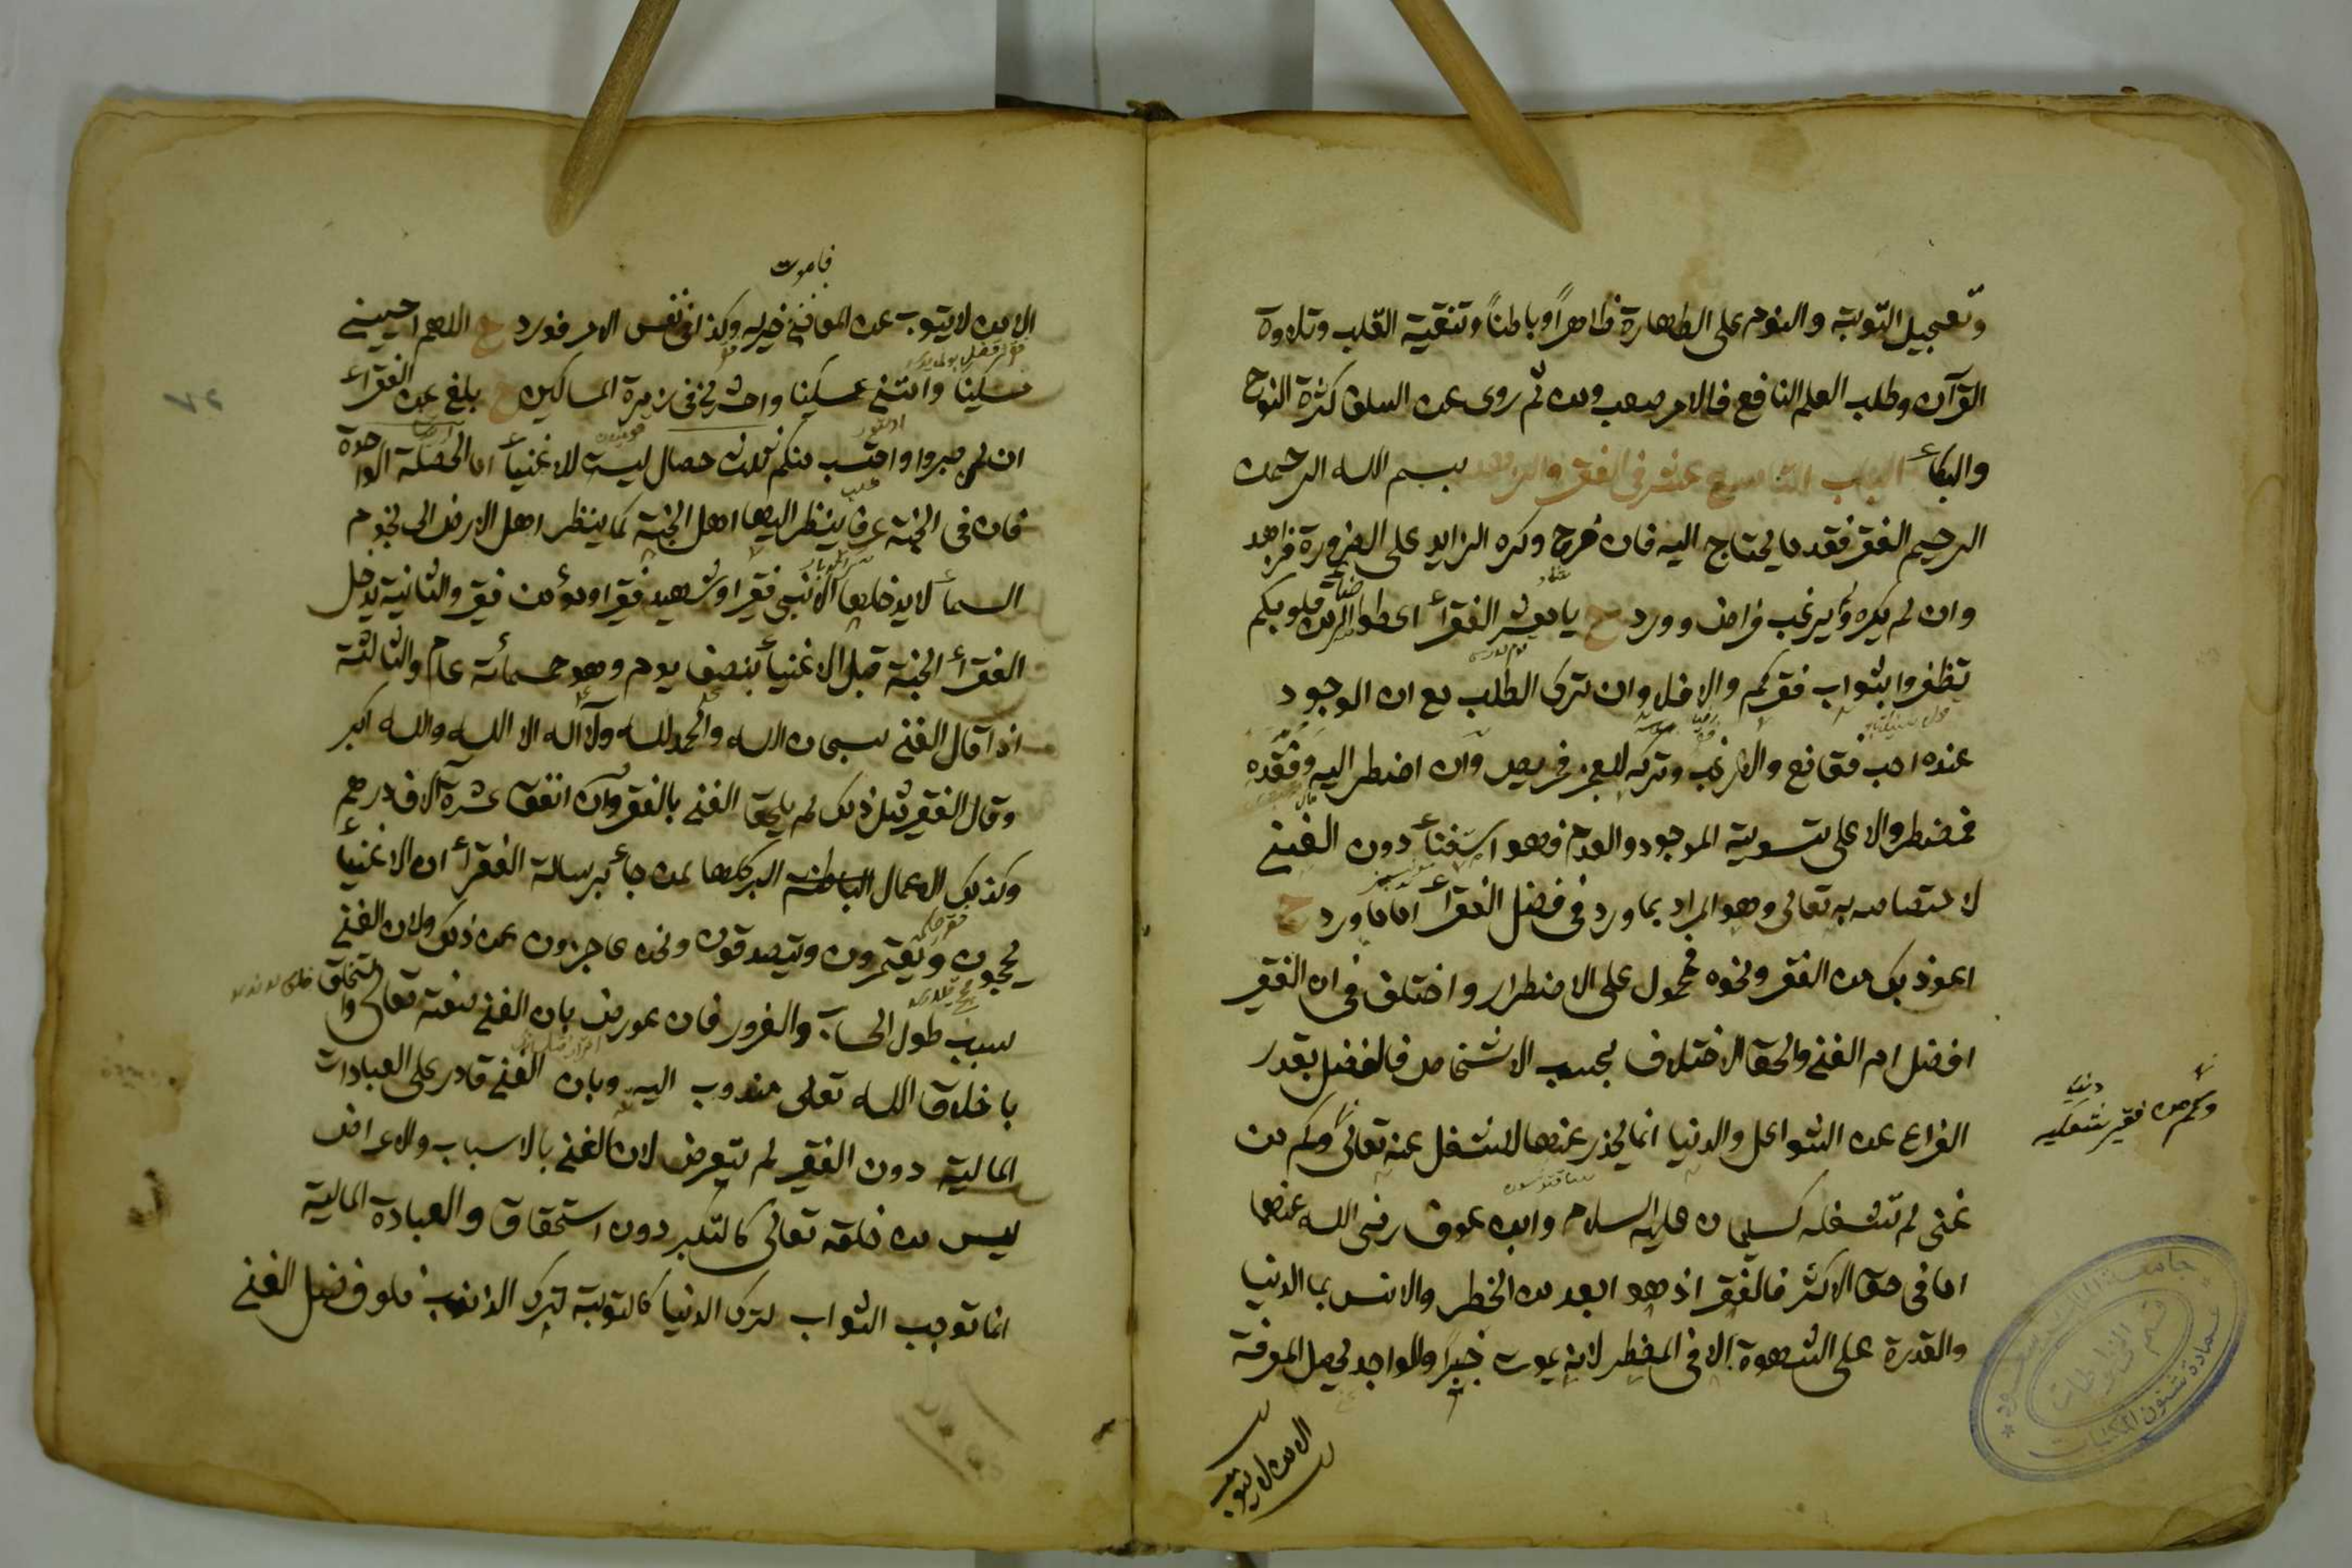 وتعجيل التوبة والنوم على الطهارة ظاهراً وباطناً وتنقية القلب وتلاوة
القرآن وطلب العلم النافع فالامر صعب ومن ثم روى عن السلف كثرة النوح
والبكاء الباب التاسع عشر فى الفقر والزهد بسم الله الرحمن
الرحيم الفقر فقد ما يحتاج اليه فان فرح وكره الزايد على الضرورة فزاهد
وان لم يكره ولم يرغب فراض وورد ح يا معشر الفقراء اعطوا الله الرضا من قلوبكم
تظفروا بثواب فقركم والا فلا وان ترك الطلب مع ان الوجود
عنده احب فقانع والا رغب وتركه للعجز فحريص وان اضطر اليه وفقده
فمضطر والاعلى تسوية الوجود والعدم فهو استغناء دون الغنى
لاختصاصه به تعالى وهو المراد بما ورد فى فضل الفقراء اما ما ورد ح
اعوذ بك من الفقر ونحوه فمحمول على الاضطرار واختلف فى ان الفقير
افضل ام الغنى والحق الاختلاف بحسب الاشخاص فالفضل بقدر
الفراغ عن الشواغل والدنيا انما يحذر عنها للشغل عنه تعالى وكم من
وكم من فقير شغله
غنى لم تشغله كسليمان عليه السلام وابن عوف رضى الله عنهما
اما فى حق الاكثر فالفقر اذ هو ابعد من الخطر والانس بما الدنيا
والقدرة على الشهوة الا فى المضطر لانه يموت خيراً والواجد يحصل المعرفة
الا من لا يتوب
فاموت
الا من لا يتوب عن المعاصى خير له وكذا فى نفس الامر فورد ح اللهم احيينى
مسكينا وامتنى مسكينا واحشرنى فى زمرة المساكين ح بلغ عن الفقراء
ان لمن صبروا واحتسب منكم ثلاث خصال ليست للاغنياء اما الخصلة الواحدة
فان فى الجنة غرفا ينظر اليها اهل الجنة كما ينظر اهل الارض الى نجوم
السماء لا يدخلها الا نبى فقير او شهيد فقير او مؤمن فقير والثانية يدخل
الفقراء الجنة قبل الاغنياء بنصف يوم وهو خمسمائة عام والثالثة
اذا قال الغنى سبحان الله والحمد لله ولا اله الا الله والله اكبر
وقال الفقير مثل ذلك لم يلحق الغنى بالفقر وان انفق عشرة آلاف درهم
وكذلك الاعمال الباطنة البر كلها لمن جاء برسالة الفقراء ان الاغنياء
يحجون ويعتمرون ويتصدقون ونحن عاجزون عن ذلك ولان الغنى
سبب طول الحساب والغرور فان عورض بان الغنى صفته تعالى والتخلق
باخلاق الله تعالى مندوب اليه وبان الغنى قادر على العبادات
المالية دون الفقير لم يتعرض لان الغنى بالاسباب والاعراض
ليس من خلقه تعالى كالتكبر دون استحقاق والعبادة المالية
انما توجب الثواب لترك الدنيا كالتوبة لترك الذانب فلو فضل الغنى
جامعة الملك سعود
قسم المخطوطات
عمادة شئون المكتبات